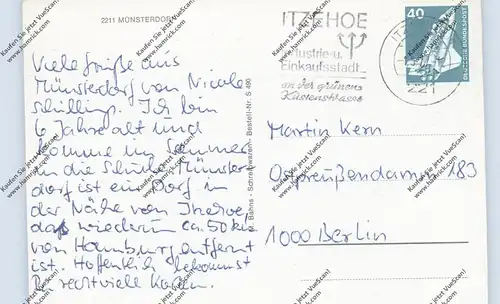 2211 MÜNSTERDORF
Viele Grüße aus
Münsterdorf von Nicole
Schilling. Ich bin
6 Jahre alt und
komme im Sommer
in die Schule. Münster
dorf ist ein Dorf in
der Nähe von
das wiederum ca. 50 km
von Hamburg entfernt
ist. Hoffentlich bekommst
Du recht viele Karten.
Bahns - Schreibwaren - Bestell-Nr. S 490
ITZEHOE
Industrie- u.
Einkaufsstadt
an der grünen
Küstenstrasse
ITZ
221
40
DEUTSCHE BUNDESPOST
Martin Kern
Ostpreußendamm 183
1000 Berlin
Kaufen Sie jetzt VueScan!
www.hamrick.com